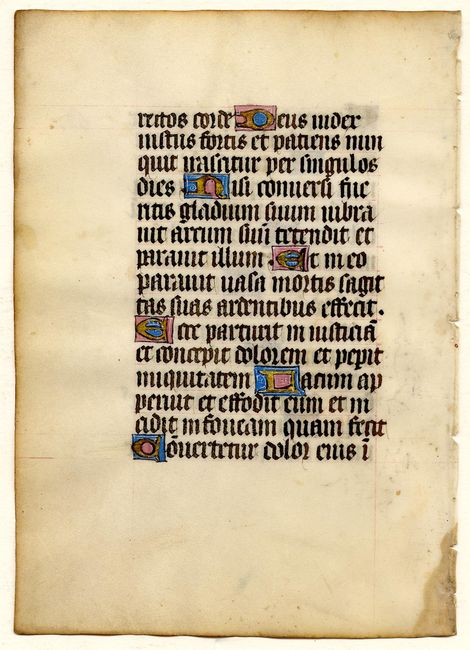 rectos corde Deus iudex
iustus fortis et patiens nun
quit irascitur per singulos
dies Nisi conversi fue
ritis gladium suum vibra
uit arcum suū tetendit et
parauit illum Et in eo
parauit uasa mortis sagit
tas suas ardentibus effecit.
Ecce parturit in iusticiā
et concepit dolorem et pepit
iniquitatem Lacum ap
peruit et effodit eum et in
cidit in foueam quam fecit
Cōuertetur dolor eius ī